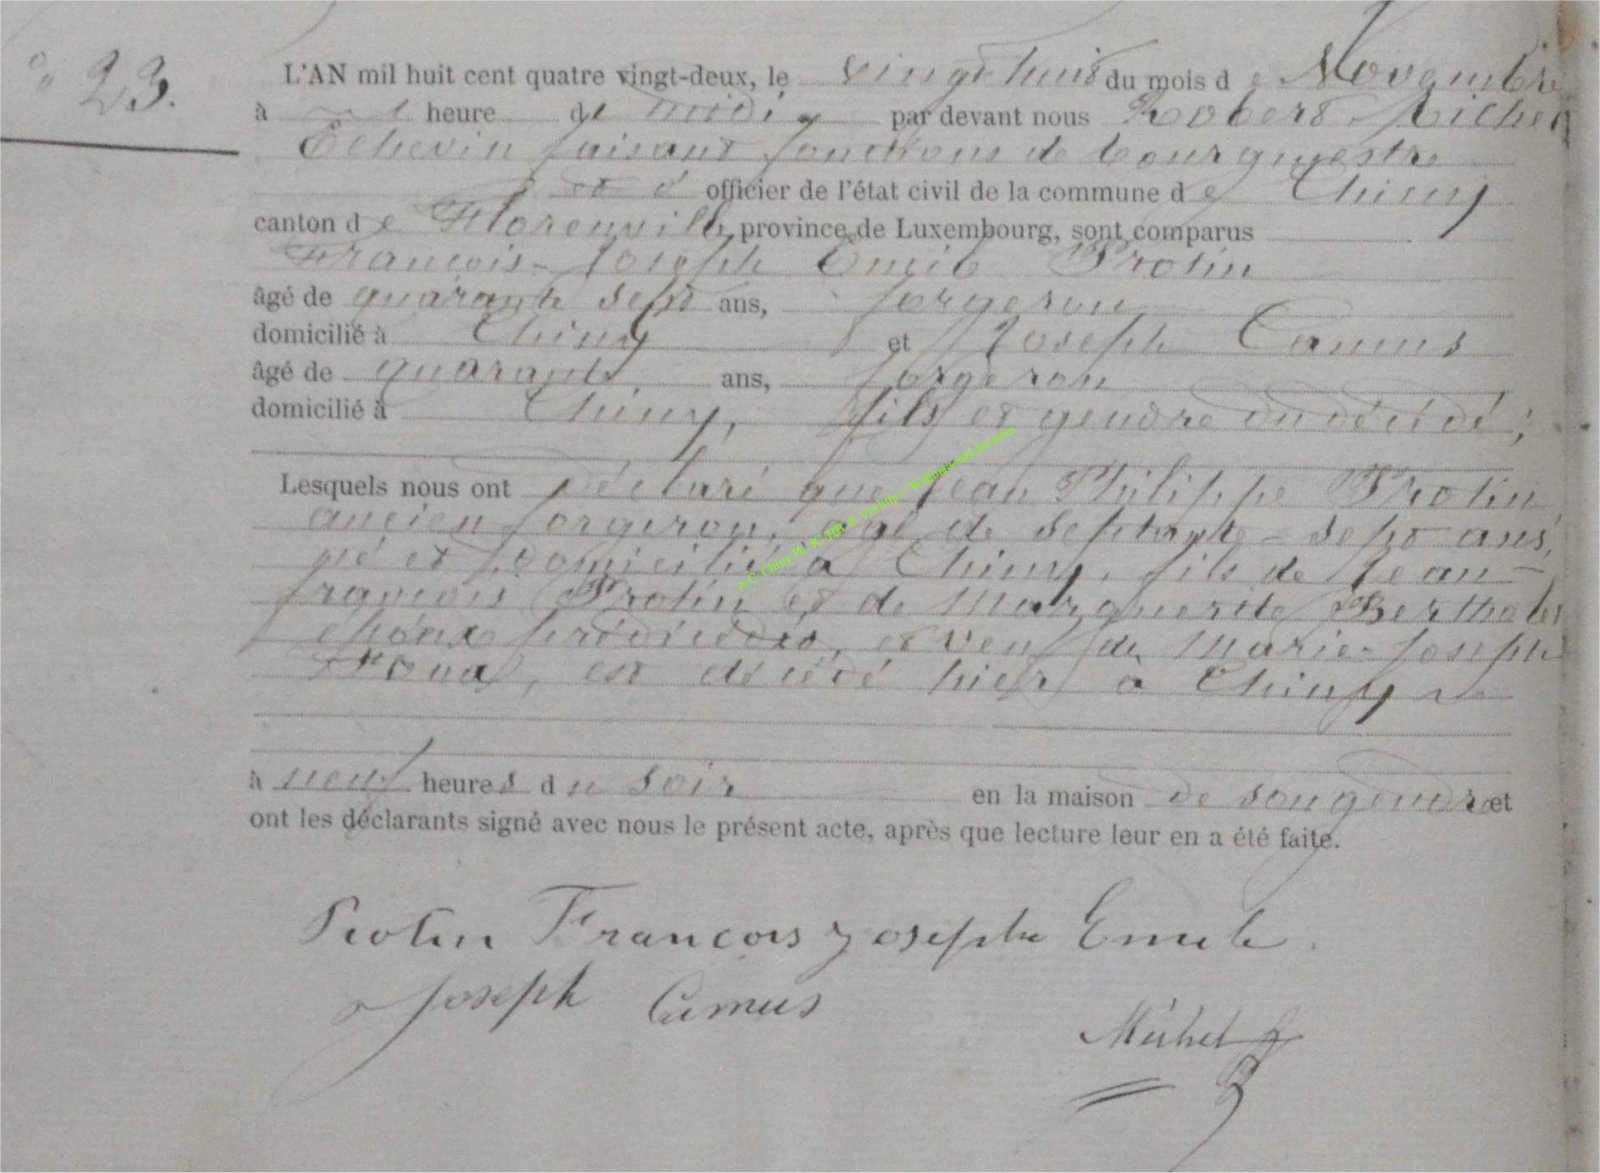 n° 23.
L'AN mil huit cent quatre vingt-deux, le vingt huit du mois de Novembre
à 1 heure de midi par devant nous Robert Michel
Echevin faisant fonctions de bourgmestre
officier de l'état civil de la commune de Chiny
canton de Florenville, province de Luxembourg, sont comparus
François-Joseph Emile Protin
âgé de quarante sept ans, forgeron
domicilié à Chiny et Joseph Camus
âgé de quarante ans, forgeron
domicilié à Chiny, fils et gendre du décédé;
Lesquels nous ont déclaré que Jean Philippe Protin
ancien forgeron, agé de septante-sept ans,
né et domicilié à Chiny, fils de Jean-
françois Protin et de Marguerite Berthol
époux prédécédés, et veuf de Marie-Joseph
est décédé hier à Chiny
à neuf heures du soir en la maison de son gendre et
ont les déclarants signé avec nous le présent acte, après que lecture leur en a été faite.
Protin François Joseph Emile.
Joseph Camus
Michel